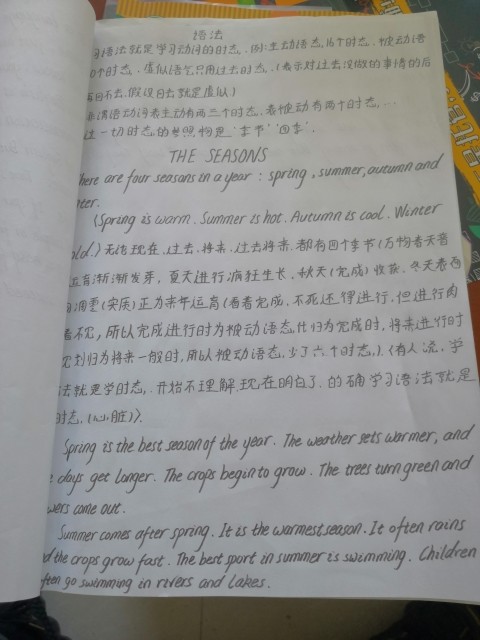 语法
习语法就是学习动词的时态. 例: 主动语态, 16个时态. 被动语
0个时态. 虚拟语气只用过去时态. (表示对过去没做的事情的后
再回不去, 假设回去就是虚拟)
语动词
一切时态的参照物是'季节''四季'.
THE SEASONS
here are four seasons in a year : spring, summer, autumn and
nter.
(Spring is warm. Summer is hot. Autumn is cool. Winter
old.) 无论现在. 过去. 将来. 过去将来. 都有四个季节 (万物春天
渐渐发芽. 夏天进行疯狂生长. 秋天(完成) 收获. 冬天
(实质) 正为来年运育 (看着完成, 不死还得进行, 但进行肉
看不见, 所以完成进行时为被动语态, 代归为完成时, 将来进行时
划归为将来一般时, 所以被动语态, 少了六个时态,). (有人说, 学
法就是学时态, 开始不理解, 现在明白了. 的确学习语法就是
时态, (心脏)).
Spring is the best season of the year. The weather sets warmer, and
e days get longer. The crops begin to grow. The trees turn green and
wers come out.
Summer comes after spring. It is the warmest season. It often rains
d the crops grow fast. The best sport in summer is swimming. Children
ften go swimming in rivers and lakes.